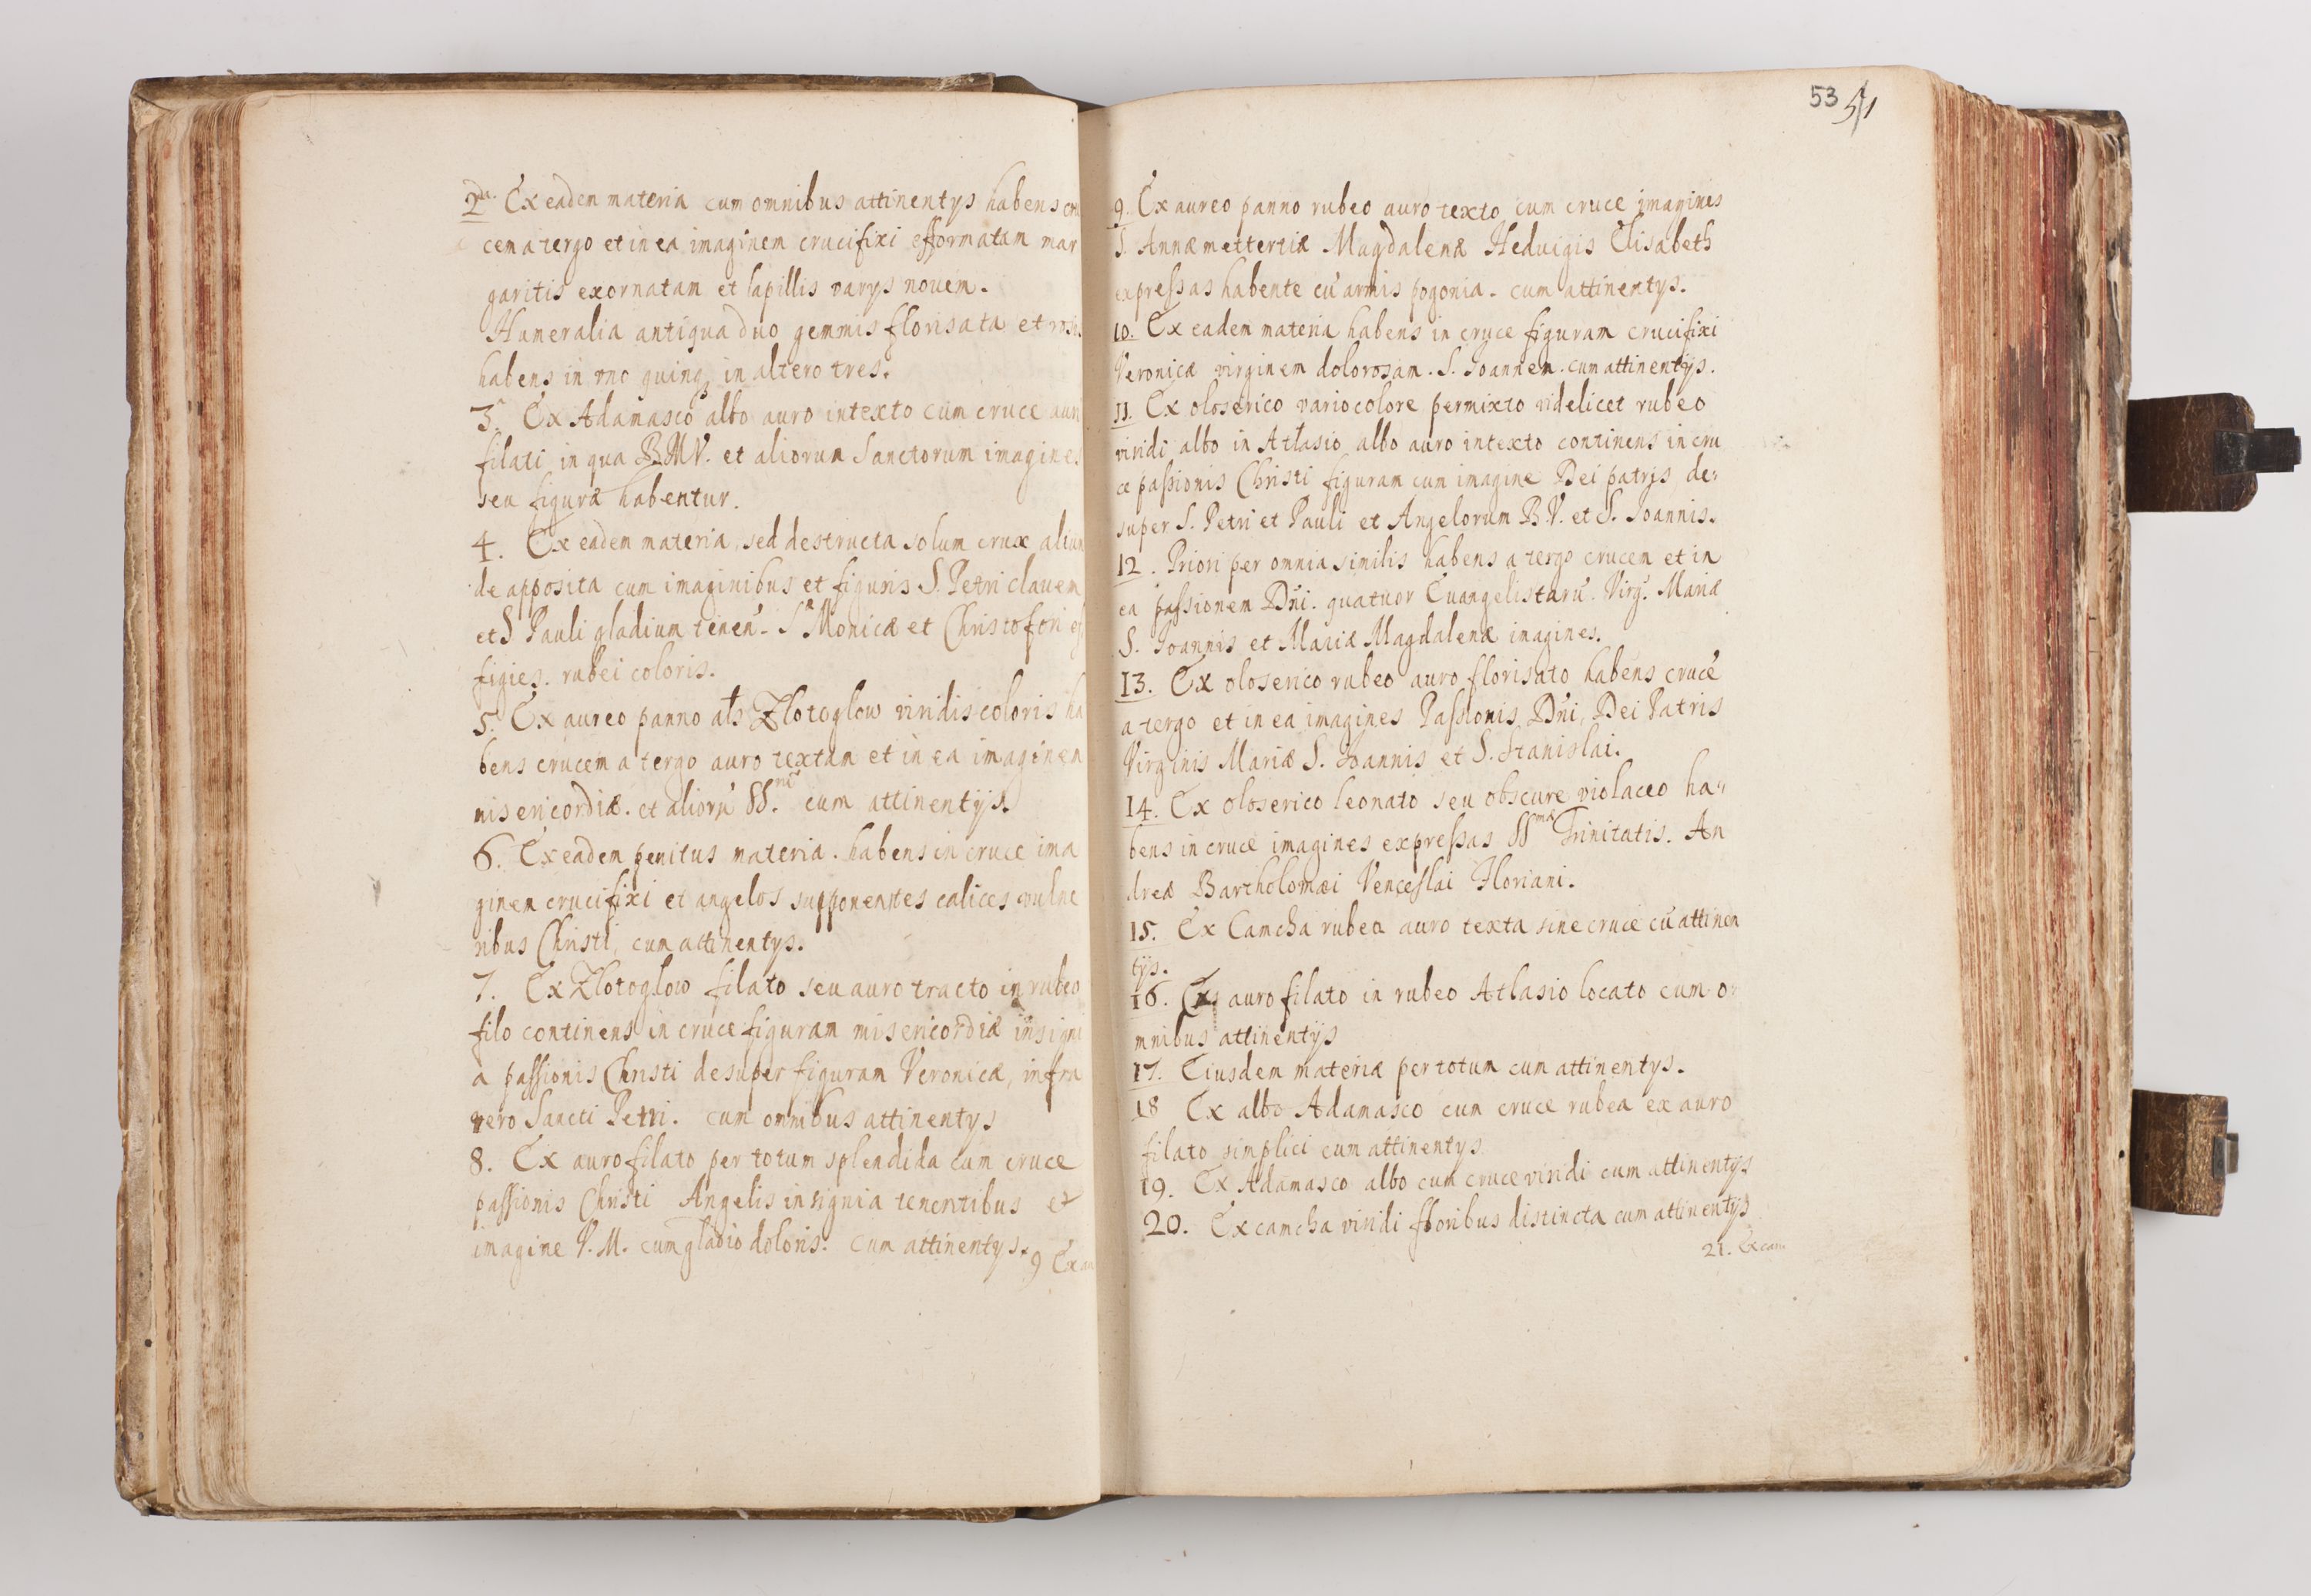 2da. Ex eadem materia cum omnibus attinentys habens cru
cem a tergo et in ea imaginem crucifixi efformatam mar
garitis exornatam et lapillis varys novem.
Humeralia antiqua duo gemmis florisata et rosis
habens in vno quinq in altero tres.
3. Ex Adamasco albo auro intexto cum cruce auri
filati in qua BMV. et aliorum Sanctorum imagines
seu figuræ habentur.
4. Ex eadem materia, sed destructa solum crux aliun
de apposita cum imaginibus et figuris S. Petri clavem
et S Pauli gladium tenen. S Monicæ et Christofori ef
figies. rubei coloris.
5. Ex aureo panno als Zlotoglow viridis coloris ha
bens crucem a tergo auro textam et in ea imaginem
misericordiæ. et alioru SS. cum attinentijs.
6. Ex eadem penitus materia. habens in cruce ima
ginem crucifixi et angelos supponentes calices vulne
ribus Christi, cum attinentys.
7. Ex Zlotoglow filato seu auro tracto in rubeo
filo continens in cruce figuram misericordiæ insigni
a passionis Christi desuper figuram Veronicæ, infra
vero Sancti Petri. cum omnibus attinentys
8. Ex auro filato per totum splendida cum cruce
passionis Christi Angelis insignia tenentibus et
imagine V. M. cum gladio doloris. cum attinentys.
9 Ex au
53 51
9. Ex aureo panno rubeo auro texto cum cruce imagines
S. Annæ mettertiæ Magdalenæ Hedvigis Elisabeth
expressas habente cu armis pogonia. cum attinentys.
10. Ex eadem materia habens in cruce figuram crucifixi
Veronicæ virginem dolorosam. S. Joannem. cum attinentijs.
11. Ex oloserico vario colore permixto videlicet rubeo
viridi albo in Atlasio albo auro intexto continens in cru
ce passionis Christi figuram cum imagine Dei patris de-
super S. Petri et Pauli et Angelorum B.V. et S. Joannis.
12. Priori per omnia similis habens a tergo crucem et in
ea passionem Dni. quatuor Evangelistaru. Virg. Mariæ
S. Joannis et Mariæ Magdalenæ imagines.
13. Ex oloserico rubeo auro florisato habens cruce
a tergo et in ea imagines Passionis Dni, Dei Patris
Virginis Mariæ S. Joannis et S. Stanislai.
14. Ex oloserico leonato seu obscure violaceo ha-
bens in cruce imagines expressas SSmæ Trinitatis. An
dreæ Bartholomæi Venceslai Floriani.
15. Ex Camcha rubea auro texta sine cruce cu attinen
tijs.
16. Ex auro filato in rubeo Atlasio locato cum o-
mnibus attinentijs
17. Eiusdem materiæ per totum cum attinentys.
18 Ex albo Adamasco cum cruce rubea ex auro
filato simplici cum attinentys
19. Ex Adamasco albo cum cruce viridi cum attinentijs
20. Ex camcha viridi floribus distincta cum attinentijs
21. Ex cam